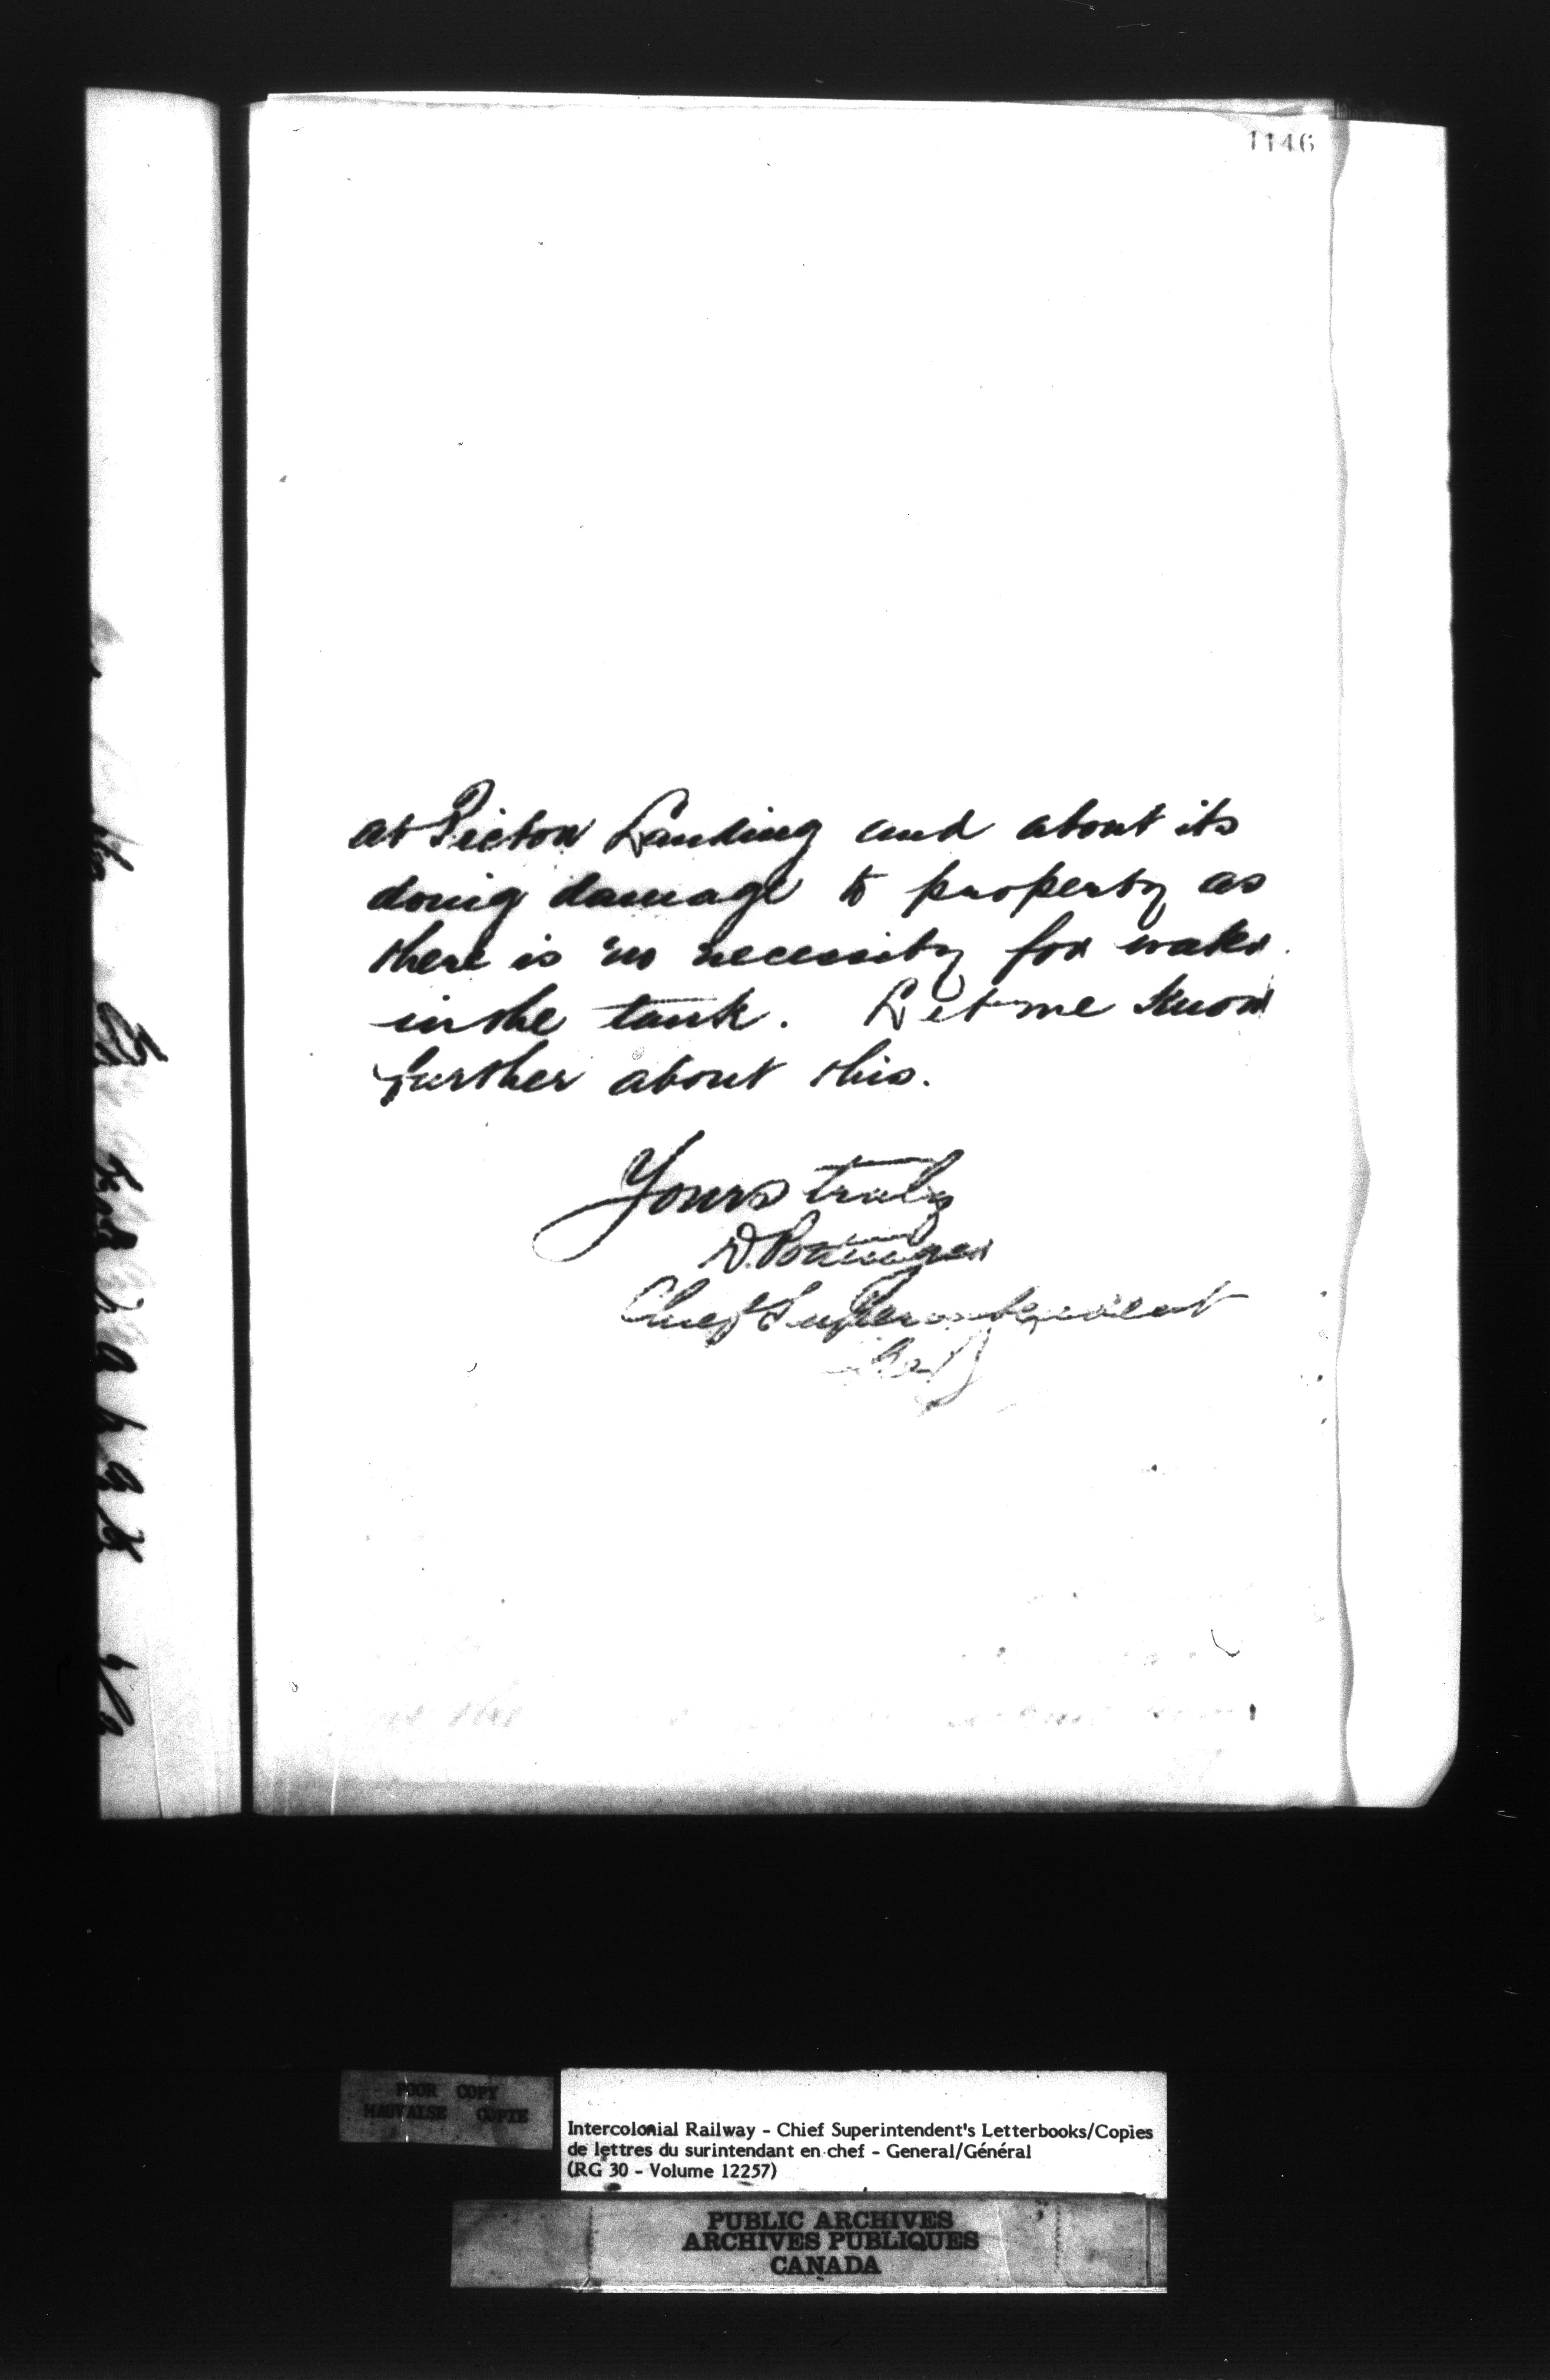 1146
at Pictou Landing and about its
doing damage to property as
there is no necessity for water
in the tank. Let me know
further about this.
Yours truly
D. Pottinger
Chief Superintendent
POOR COPY
MAUVAISE COPIE
Intercolonial Railway - Chief Superintendent's Letterbooks/Copies
de lettres du surintendant en chef - General/Général
(RG 30 - Volume 12257)
PUBLIC ARCHIVES
ARCHIVES PUBLIQUES
CANADA